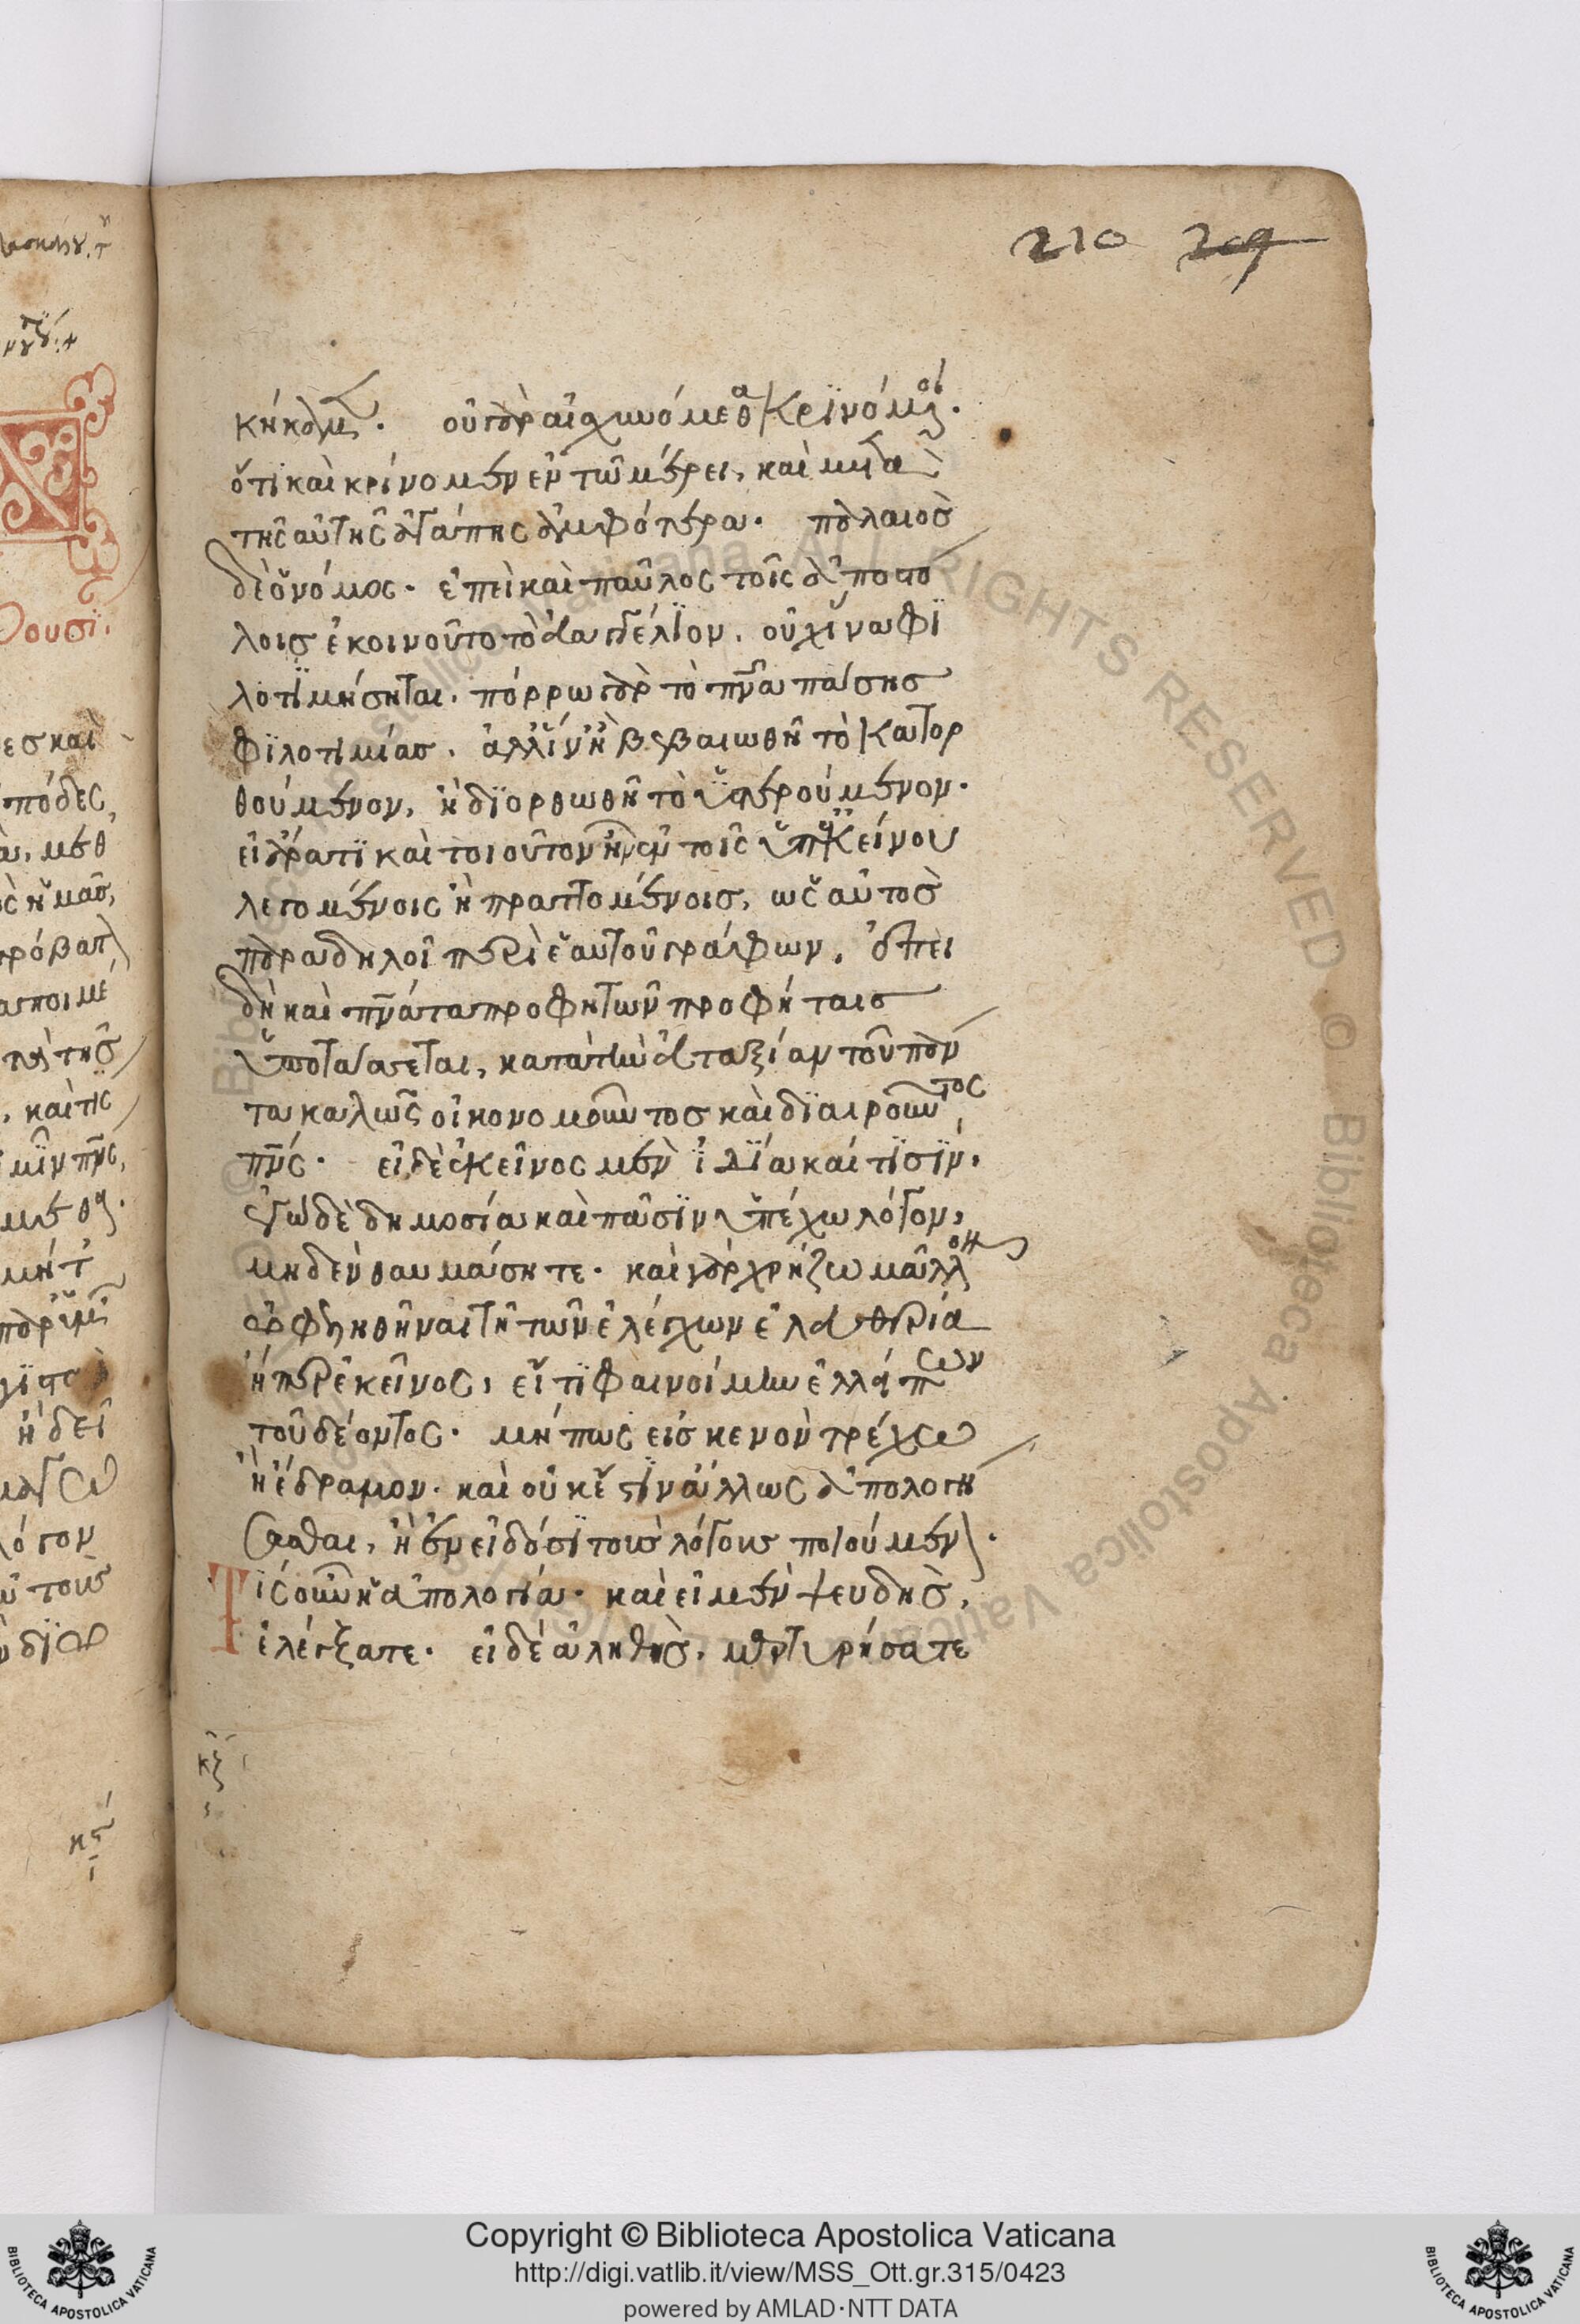 210 209
κήκαμεν. οὐ γὰρ αἰσχυνόμεθα κρϊνόμενοι.
ὅτι καὶ κρίνομεν ἐν τῶ μέρει, καὶ μετὰ
τῆς αὐτῆς ἀγάπης ἀμφότερα. παλαιὸς
δὲ ὁ νόμος. ἐπεὶ καὶ παῦλος τοῖς ἀποστό
λοις ἐκοινοῦτο τὸ εὐαγγέλϊον. οὐχ ἵνα φϊ
λοτϊμήσηται. πόρρω γὰρ τὸ πνεῦμα πάσης
φϊλοτιμίας. ἀλλ' ἵν' ἢ βεβαιωθῆ τὸ κατορ
θούμενον, ἢ δϊορθωθῆ τὸ ὑστερούμενον.
εἰ ἄρα τϊ καὶ τοιοῦτον ἦν ἐν τοῖς ὑπ' ἐκείνου
λεγομένοις ἢ πραττομένοις, ὡς αὐτὸς
παραδηλοῖ περὶ ἑαυτοῦ γράφων. ἐπει
δὴ καὶ πνεύματα προφητῶν προφήταις
ὑποτάσσεται, κατὰ τὴν εὐταξίαν τοῦ πάν
τα καλῶς οἰκονομοῦντος καὶ δϊαιροῦντος
πνεύματος. εἰ δὲ ἐκεῖνος μὲν ἰδίᾳ καί τϊσϊν.
ἐγὼ δὲ δημοσία καὶ πᾶσϊν ὑπέχω λόγον,
μηδὲν θαυμάσητε. καὶ γὰρ χρήζω μᾶλλον
ὠφεληθῆναι τῆ τῶν ἐλέγχων ἐλευθερία
ἤπερ ἐκεῖνος, εἴ τϊ φαινοίμην ἐλλείπων
τοῦ δέοντος. μήπως εἰς κενὸν τρέχω
ἢ ἔδραμον. καὶ οὐκ ἔστϊν ἄλλως ἀπολογή
σασθαι, ἢ ἐν εἰδόσϊ τοὺς λόγους ποιούμενον.
Τίς οὖν ἡ ἀπολογία. καὶ εἰ μὲν ψευδὴς,
ἐλέγξατε. εἰ δὲ ἀληθὴς, μαρτυρήσατε
Copyright © Biblioteca Apostolica Vaticana
http://digi.vatlib.it/view/MSS_Ott.gr.315/0423
powered by AMLAD·NTT DATA